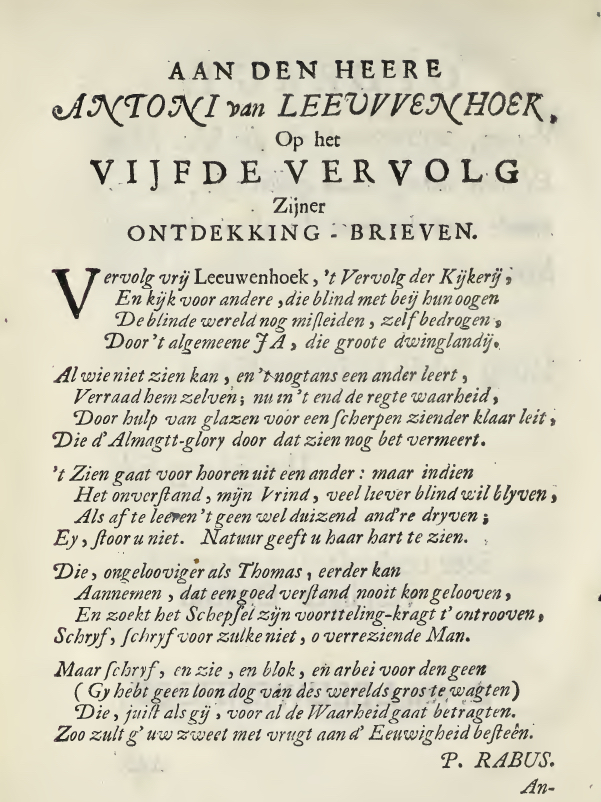 AAN DEN HEERE
ANTONI van LEEUVVENHOEK,
Op het
VIJFDE VERVOLG
Zijner
ONTDEKKING-BRIEVEN.
Vervolg vrij Leeuwenhoek, 't Vervolg der Kijkerij,
En kijk voor andere, die blind met beij hun oogen
De blinde wereld nog misleiden, zelf bedrogen,
Door 't algemeene JA, die groote dwinglandij.
Al wie niet zien kan, en 't nogtans een ander leert,
Verraad hem zelven; nu in 't end de regte waarheid,
Door hulp van glazen voor een scherpen ziender klaar leit,
Die d'Almagtt-glory door dat zien nog bet vermeert.
't Zien gaat voor hooren uit een ander: maar indien
Het onverstand, mijn Vrind, veel liever blind wil blyven,
Als af te leeren 't geen wel duizend and're dryven;
Ey, stoor u niet. Natuur geeft u haar hart te zien.
Die, ongelooviger als Thomas, eerder kan
Aannemen, dat een goed verstand nooit kon gelooven,
En zoekt het Schepsel zijn voortteling-kragt t'ontrooven,
Schryf, schryf voor zulke niet, o verreziende Man.
Maar schryf, en zie, en blok, en arbei voor den geen
(Gy hebt geen loon dog van des werelds gros te wagten)
Die, juist als gij, voor al de Waarheid gaat betragten.
Zoo zult g'uw zweet met vrugt aan d'Eeuwigheid besteên.
P. RABUS.
An-